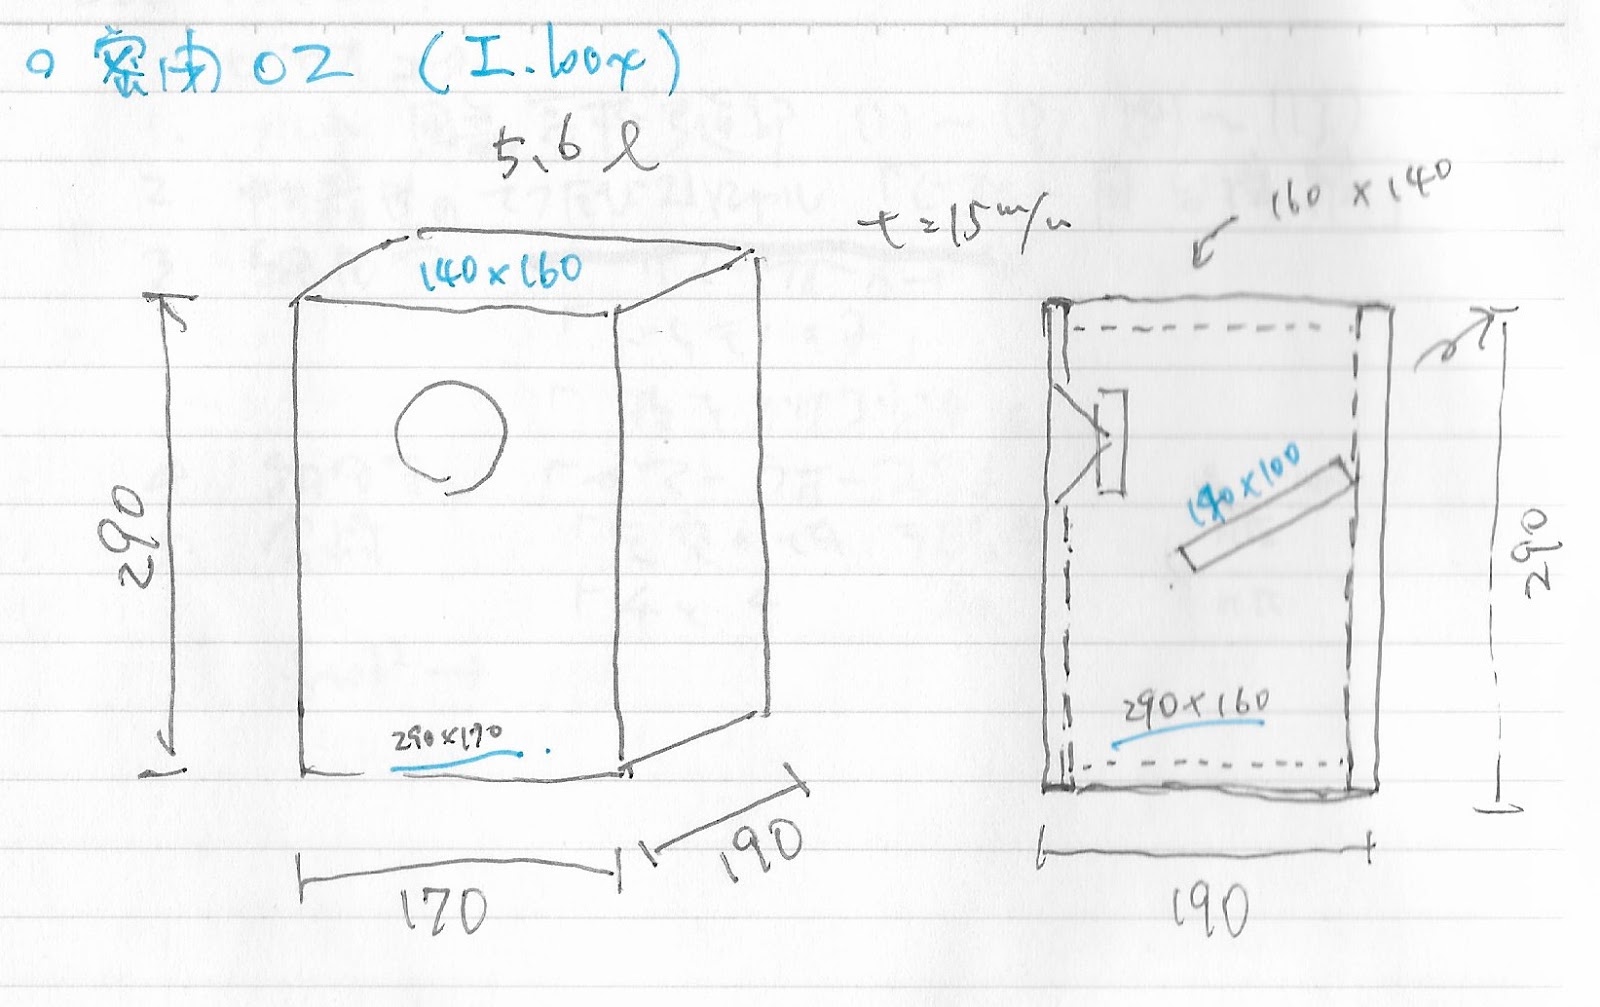 o 密由02 (I.box)
5.6 l
t=15m/m
160×140
140×160
290
190×100
290
290×170
290×160
190
170
190